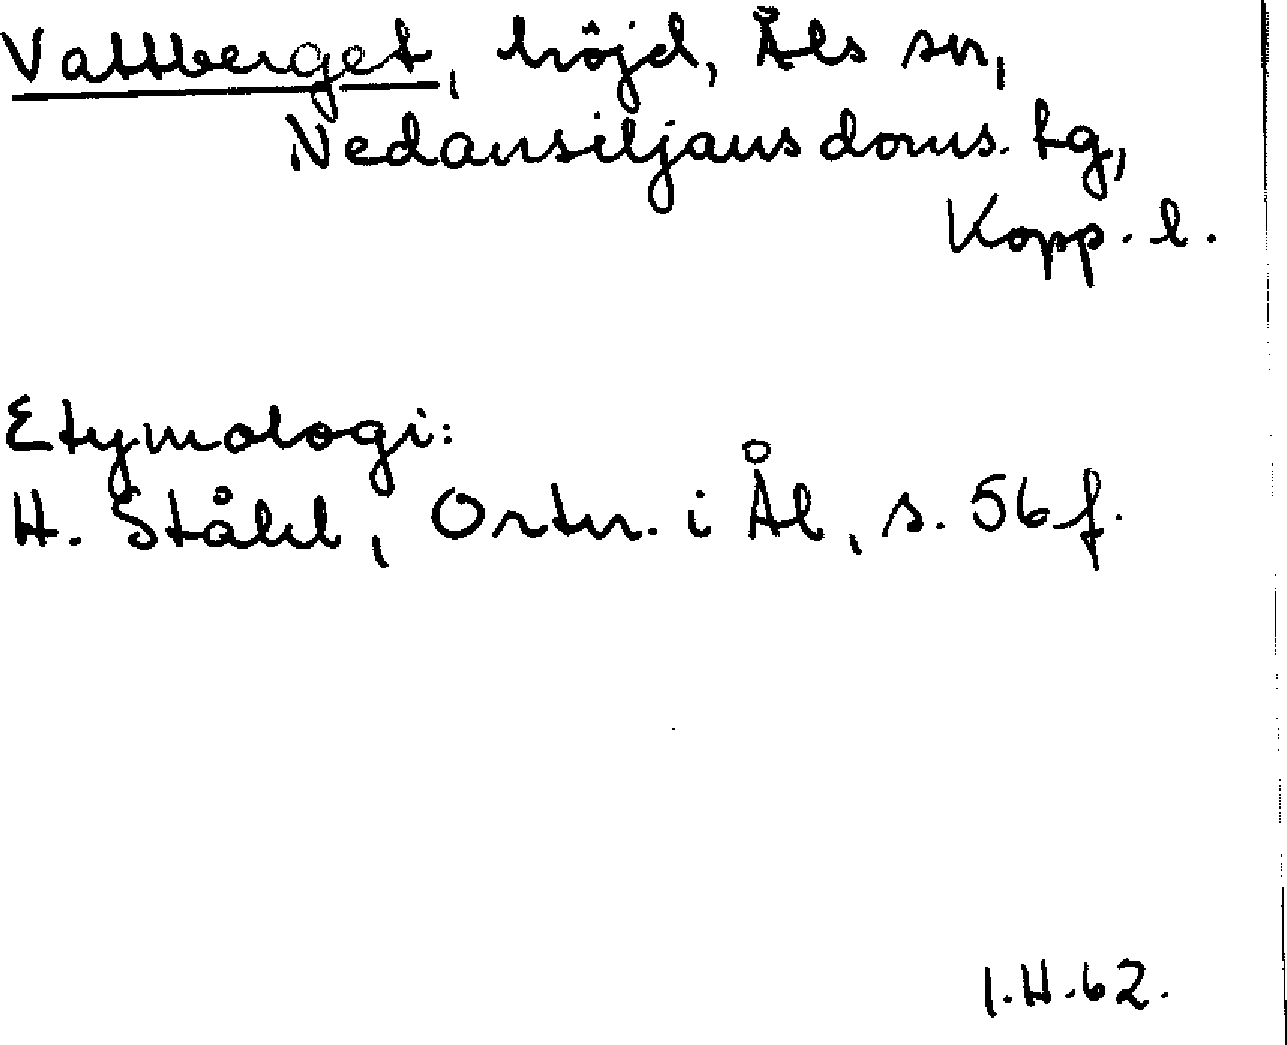 Vattberget, höjd, Åls sn,
Nedansiljans doms. tg,
Kopp. l.
Etymologi:
H. Ståhl, Ortn. i Ål, s. 56 f.
I.H.62.